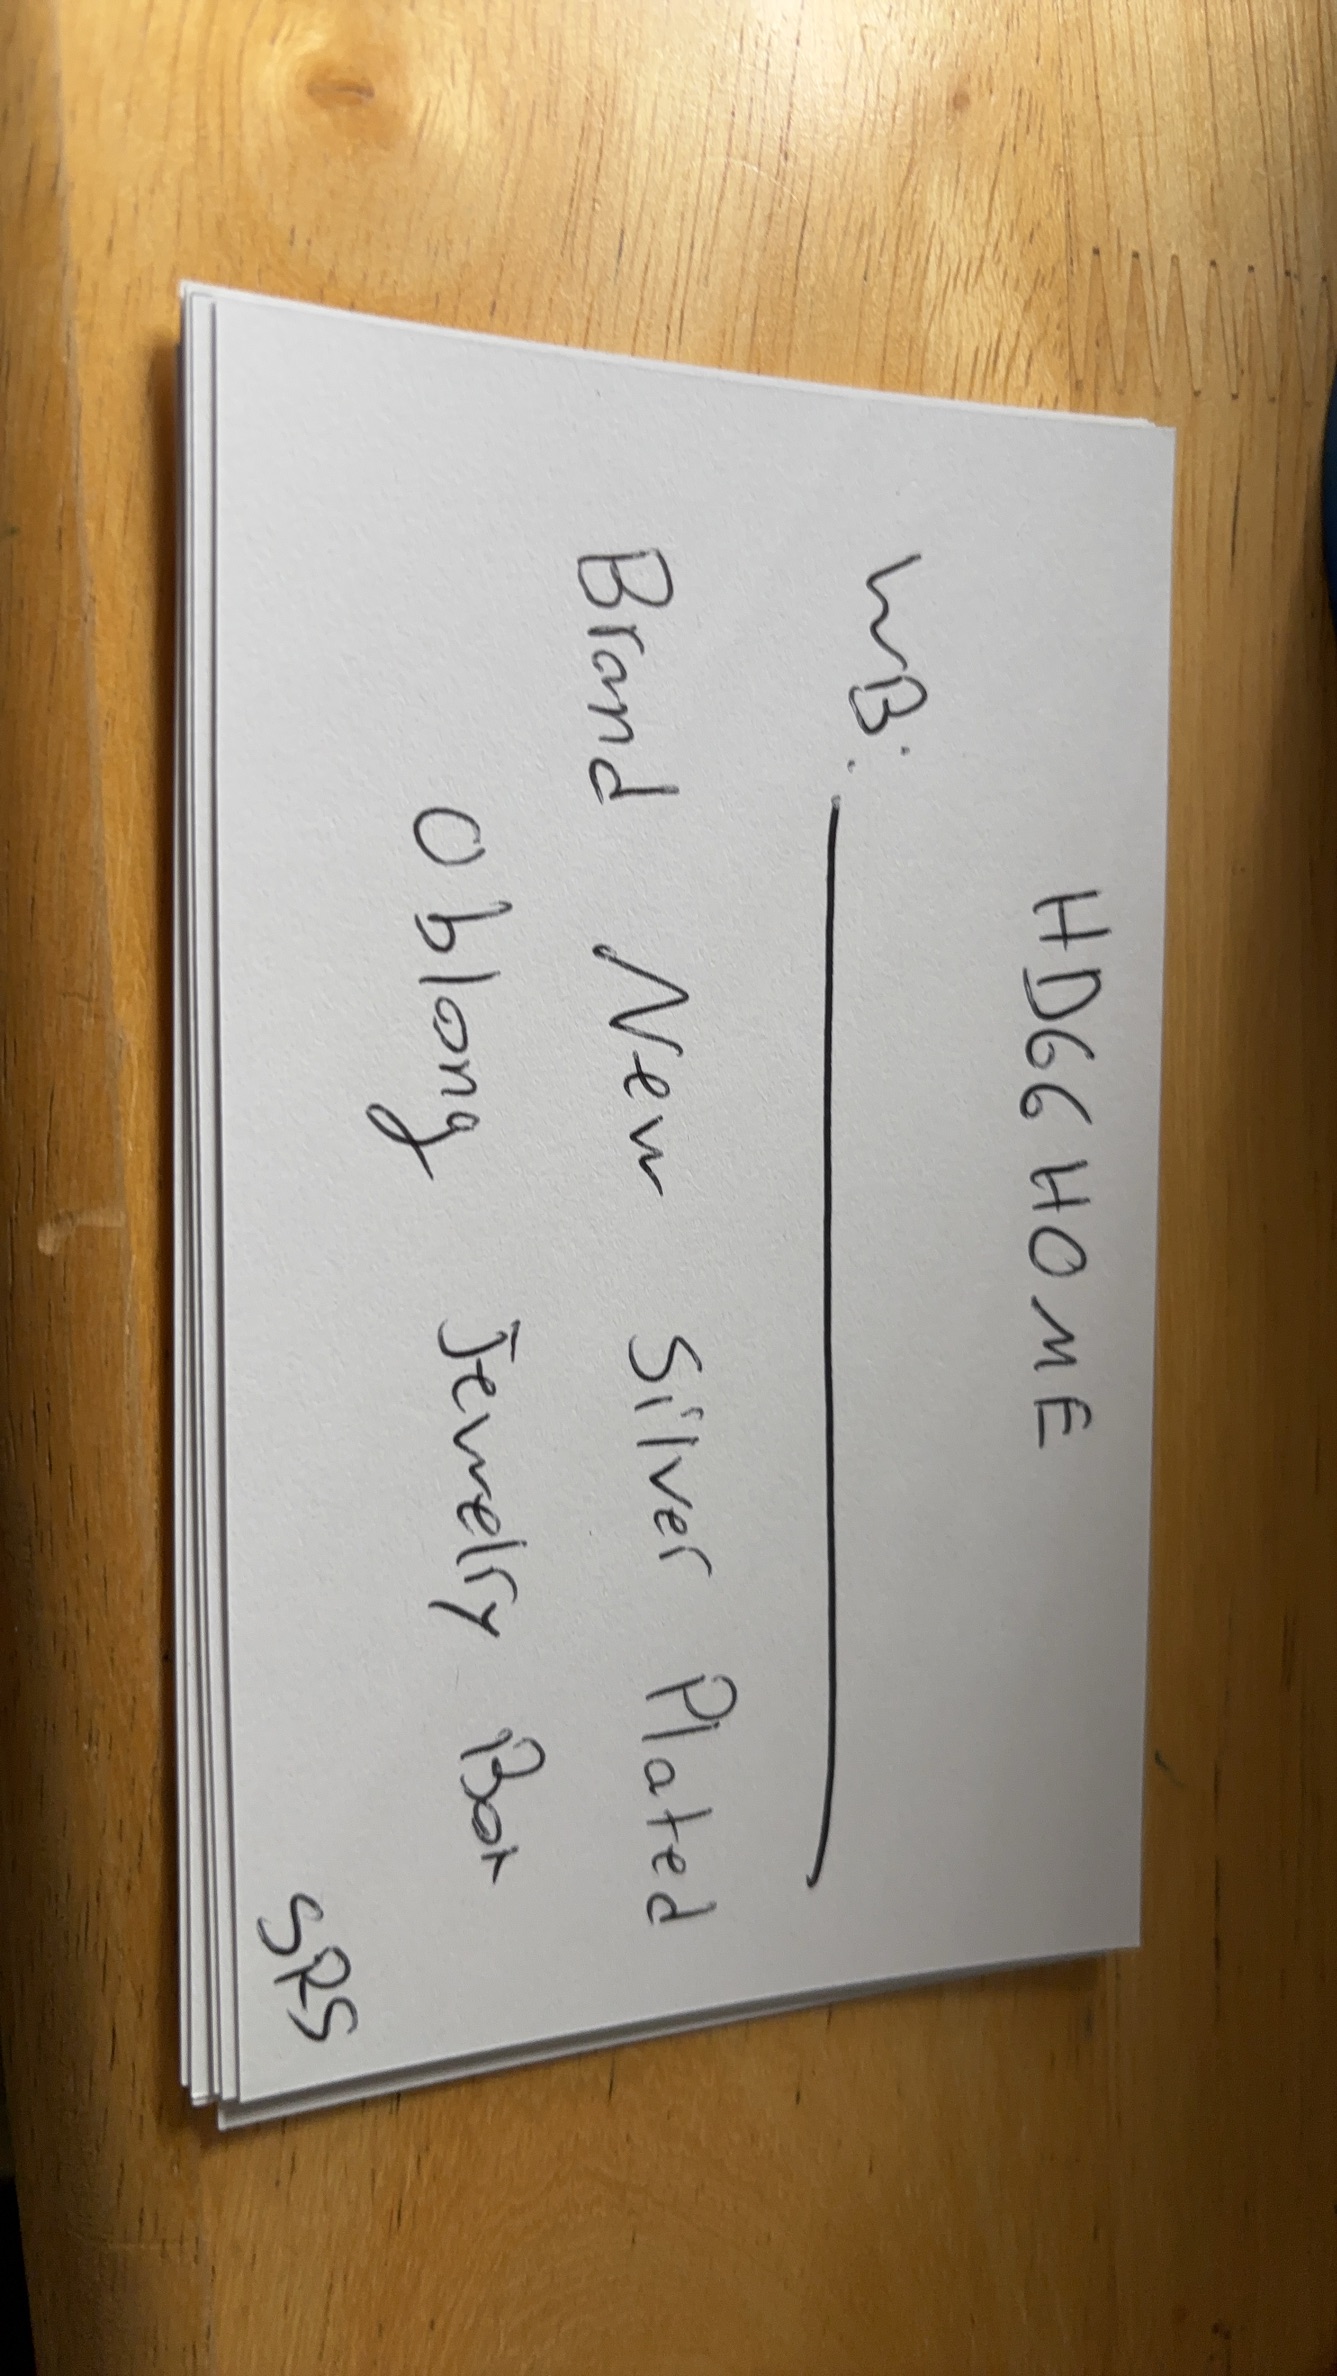 HDGGHOME
MB:
Brand New Silver Plated
Oblong Jewelry Box
SRS